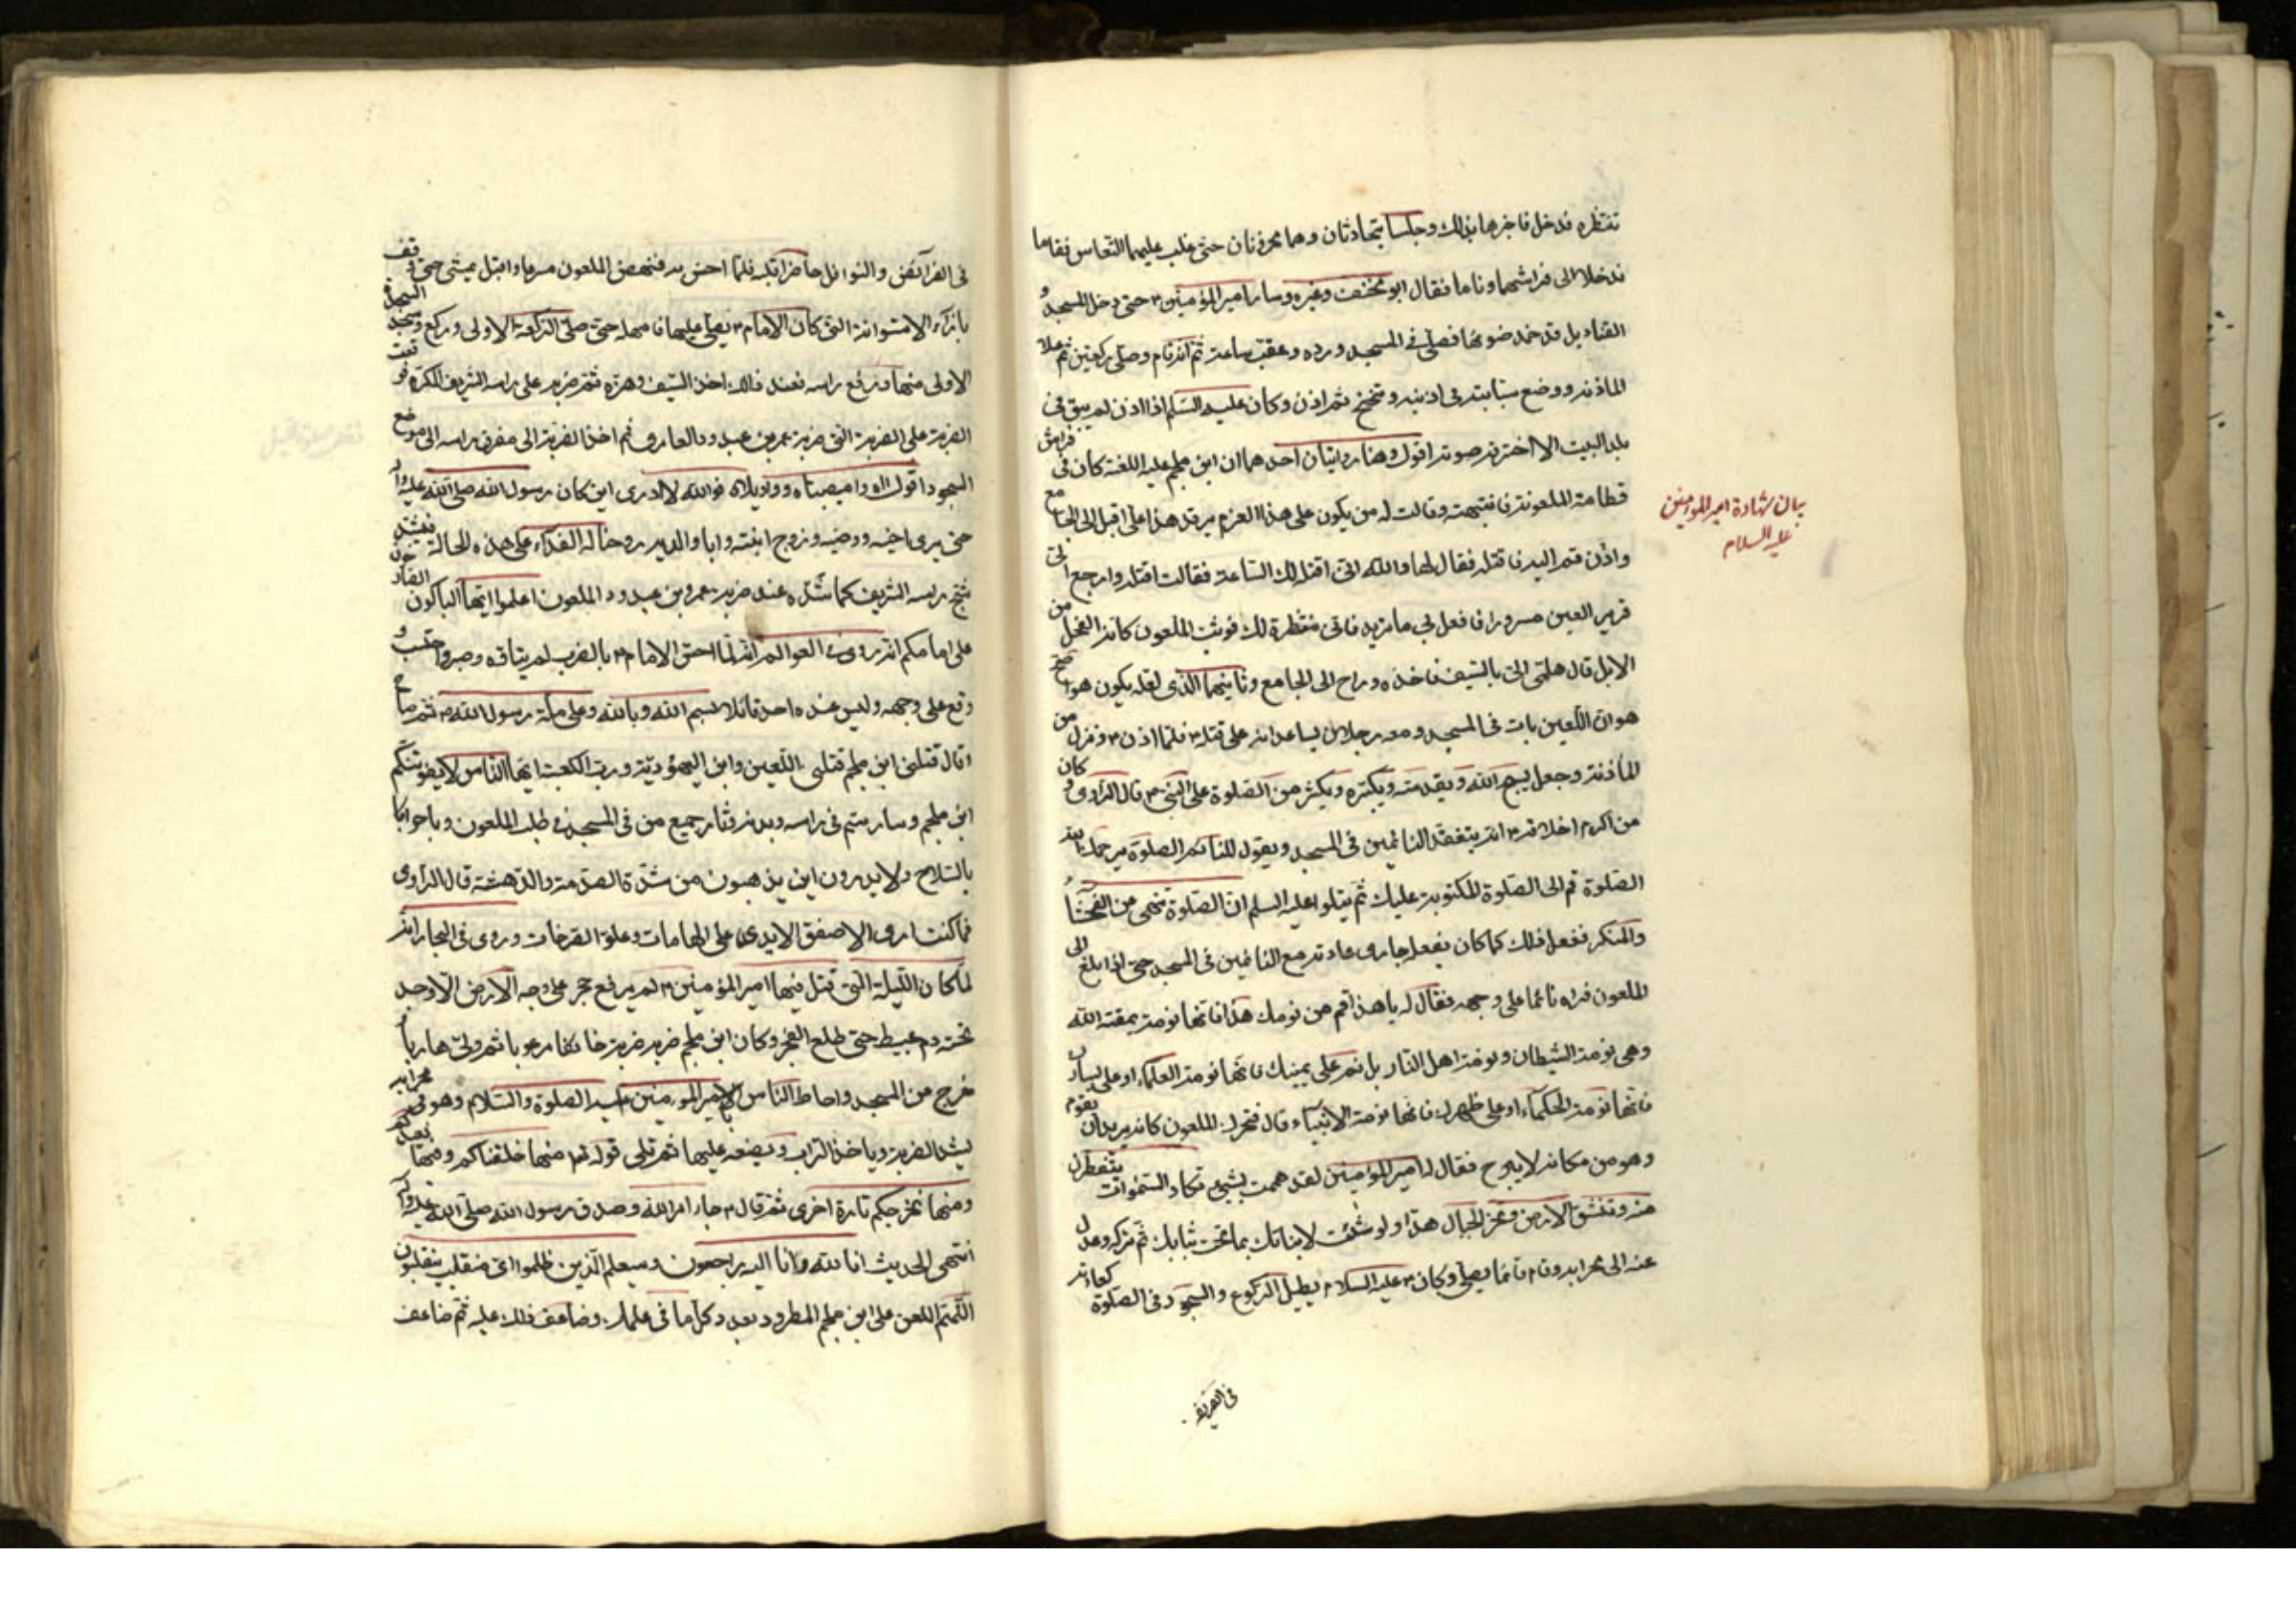 تنتظره فدخل فاخبرها بذلك وجلسا يتحادثان وهما محزونان حتى غلب عليهما النعاس فقاما
فدخلا الى فراشهما وناما فقال ابو مخنف وغيره وسار امير المؤمنين ٤ حتى دخل المسجد و
القناديل قد خمد ضوئها فصلى فى المسجد ورده وعقب ساعة ثم انه قام وصلى ركعتين ثم علا
الماذنه ووضع سبابته فى اذنيه وتنحنح ثم اذن وكان عليه السلم اذا اذن لم يبق فى
بلد البيت الا اخترقه صوته اقول وهنا روايتان احدهما ان ابن ملجم عليه اللعنة كان فى فراش
قطامة الملعونة فانتبهته وقالت له من يكون على هذا العزم يرقد هذا على اقبل الى الجامع
واذن قم اليه فاقتله فقال لها والله انى اقتله لك الساعة فقالت اقتله وارجع الى
قرير العين مسرورا فافعل بى ما تريد فانى منتظرة لك فوثب الملعون كانه الفحل من
الابل قال هلمى الى بالسيف فاخذه وراح الى الجامع وثانيهما الذى لعله يكون هو اصح
هو ان اللعين بات فى المسجد ومعه رجلان يساعدانه على قتله ٤ فلما اذن ٤ ونزل من
الماذنة وجعل يسبح الله ويقدسه ويكبره ويكثر من الصلوة على النبى ص قال الراوى وكان
من اكرم اخلاقه ٤ انه يتفقد النائمين فى المسجد ويقول للنائم الصلوة يرحمك الله
الصلوة قم الى الصلوة المكتوبة عليك ثم يتلوا عليه السلم ان الصلوة تنهى من الفحشاء
والمنكر ففعل ذلك كما كان يفعل جارى عادته مع النائمين فى المسجد حتى اذا بلغ الى
الملعون فراه نائما على وجهه فقال له يا هذا قم من نومك هذا فانها نومة يمقته الله
وهى نومة الشيطان ونومة اهل النار بل نم على يمينك فانها نومة العلماء او على يسارك
فانها نومة الحكماء او على ظهرك فانها نومة الانبياء قال فتحرك الملعون كانه يريد ان يقوم
وهو من مكانه لا يبرح فقال له امير المؤمنين لقد هممت بشىء تكاد السموات يتفطرن
منه وتنشق الارض وتخر الجبال هدا ولو شئت لانباتك بما تحت ثيابك ثم تركه وعدل
عنه الى محرابه وقام قائما يصلى وكان ٤ عليه السلام يطيل الركوع والسجود فى الصلوة كعادته
بيان شهادة امير المؤمنين
عليه السلام
فى الفرائض
فى الفرائض والنوافل حاضرا قلبه فلما احس به فنهض الملعون مسرعا واقبل يمشى حتى وقف
بازاء الاستوانة التى كان الامام ٤ يصلى عليها فامهله حتى صلى الركعة الاولى وركع وسجد السجدة
الاولى منها ورفع راسه فعند ذلك اخذ السيف وهزه ثم ضربه على راسه الشريف المكرم فوقعت
الضربة على الضربة التى ضربة عمر بن عبد ود العامرى ثم اخذ الضربة الى مفرق راسه الى موضع
السجود اقول واه وامصيبتاه وواويلاه فوالله لا ادرى اين كان رسول الله صلى الله عليه واله
حتى يرى اخيه ووصيه وزوج ابنته وابا والديه روحنا له الفداء على هذه الحالة فيشد
شج راسه الشريف كما شده عند ضربه عمرو بن عبد ود الملعون اعلموا ايها الباكون
على امامكم انه روى فى العوالم انه لما احس الامام ٤ بالضرب لم يتاوه وصبر واحتسب و
وقع على وجهه وليس عنده احد قائلا بسم الله وبالله وعلى ملة رسول الله ص ثم صاح
وقال قتلنى ابن ملجم قتلنى اللعين وابن اليهودية ورب الكعبة ايها الناس لا يفوتنكم
ابن ملجم وسار سم فى راسه وبدنه فثار جميع من فى المسجد فى طلب الملعون وماجوا
بالسلاح ولا يدرون اين يذهبون من شدة الصدمة والدهشة قال الراوى
فما كنت ارى الا صفق الايدى على الهامات وعلو الصرخات وروى فى البحار انه
لما كان الليلة التى قتل فيها امير المؤمنين ٤ لم يرفع حجر على وجه الارض الا وجد
تحته دم عبيط حتى طلع الفجر وكان ابن ملجم ضربه ضربة خائفا مرعوبا ثم ولى هاربا
خرج من المسجد واحاط الناس بامير المؤمنين عليه الصلوة والسلام وهو فى محرابه
يشد الضربة وياخذ التراب ويضعه عليها ثم تلى قوله تع منها خلقناكم وفيها نعيدكم
ومنها نخرجكم تارة اخرى ثم قال ٤ جاء امر الله وصدق رسول الله صلى الله عليه واله
انتهى الحديث انا لله وانا اليه راجعون وسيعلم الذين ظلموا اى منقلب ينقلبون
اللهم العن على ابن ملجم المطرود بعدد كل ما فى علمك وضاعف ذلك عليه ثم ضاعف